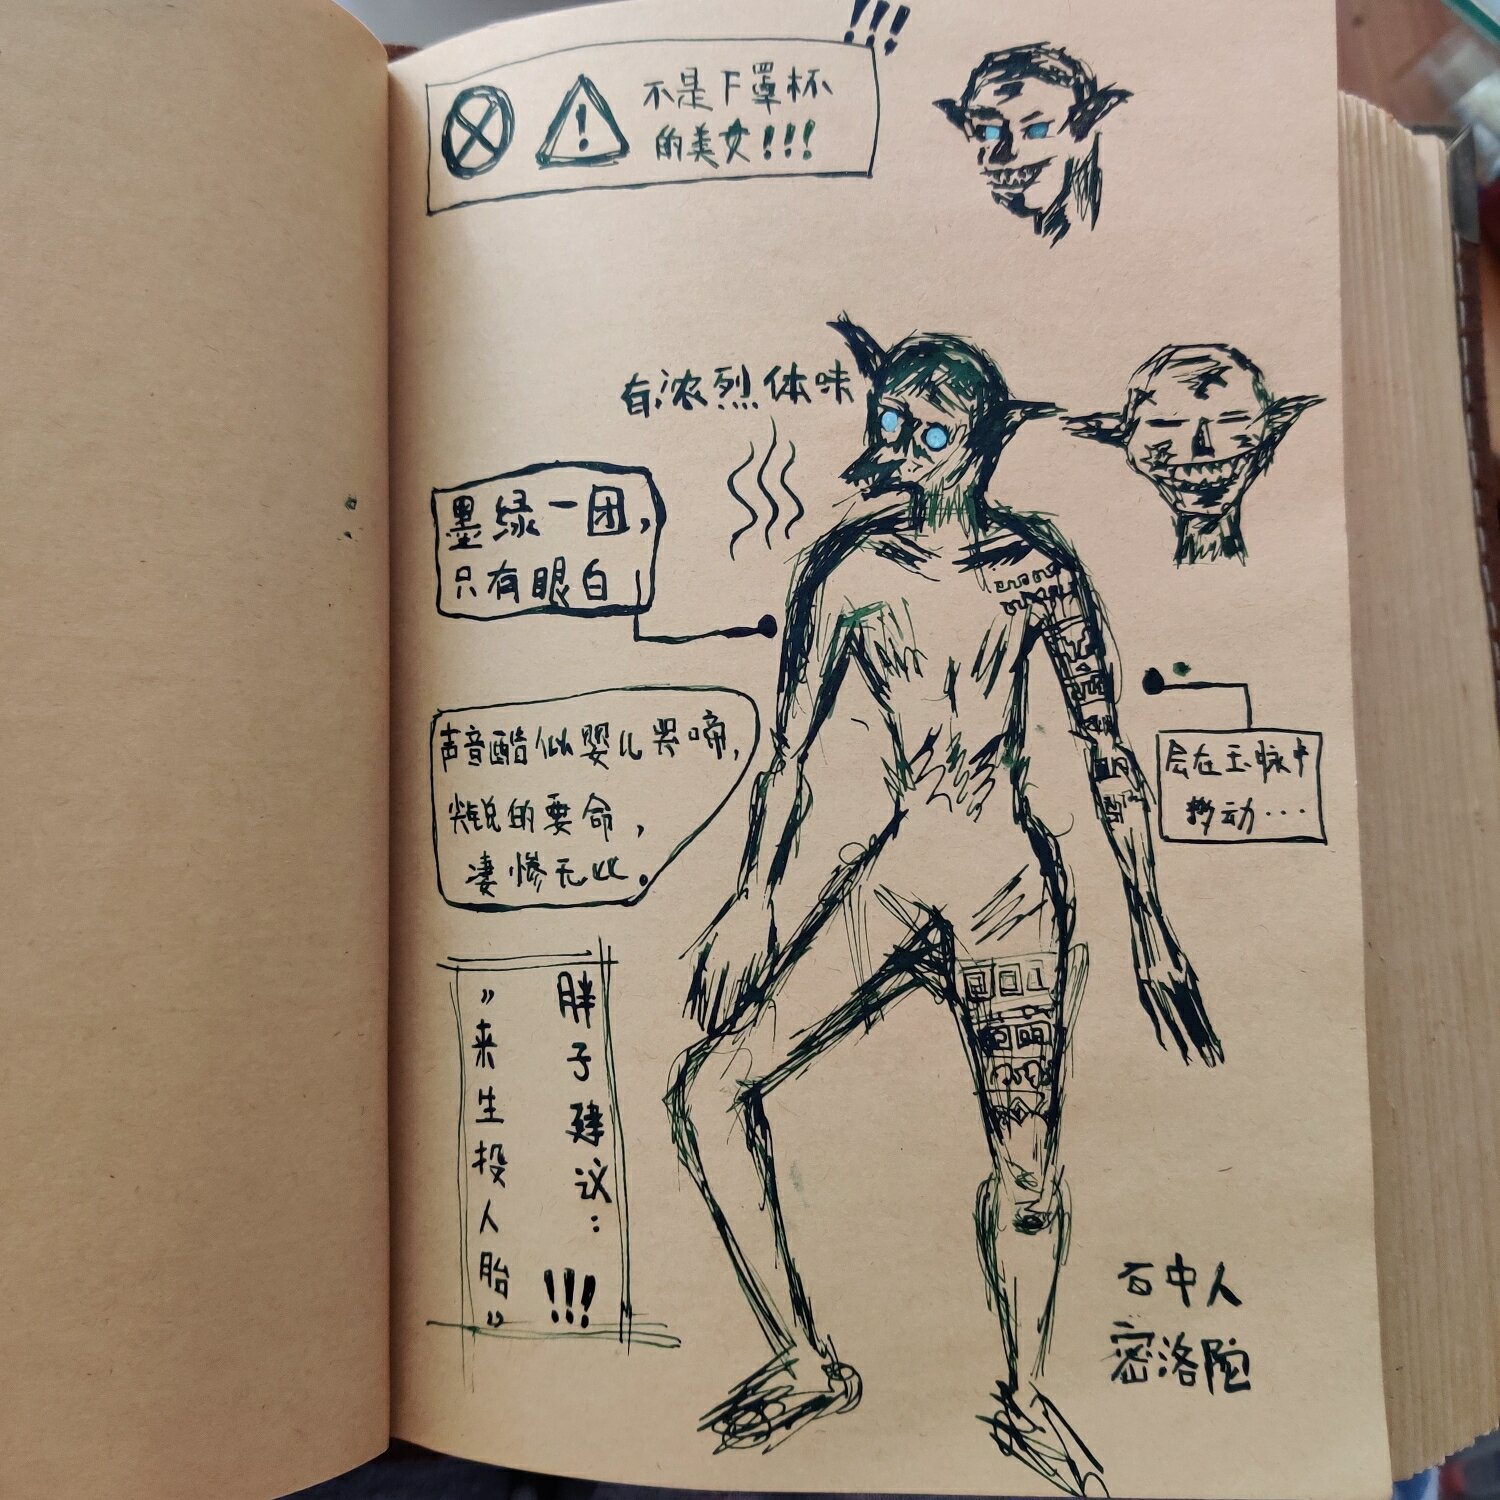 !!!
! 不是F罩杯
的美女!!!
有浓烈体味
墨绿一团,
只有眼白
声音酷似婴儿哭啼,
尖锐的要命,
凄惨无比。
会在玉脉中
移动···
胖子建议:
“来生投人胎”
!!!
石中人
密洛陀